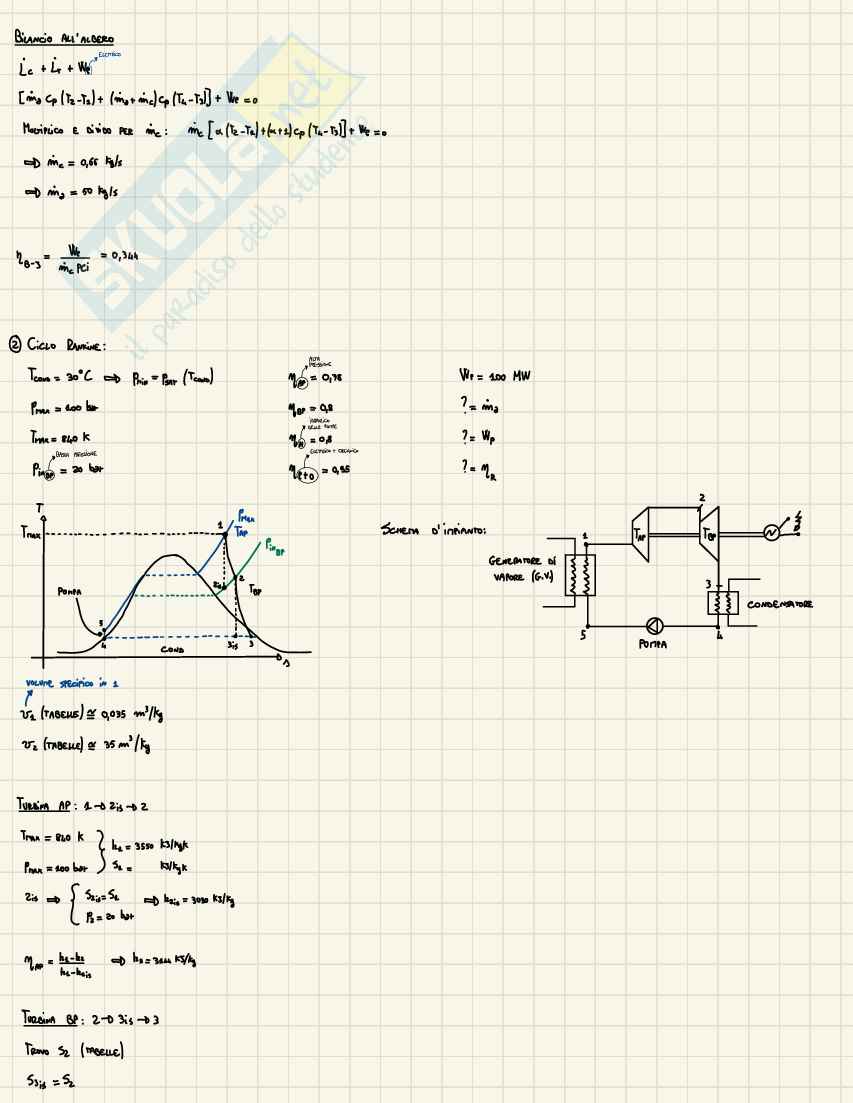 BILANCIO ALL'ALBERO
L̇c + L̇t + Ẇe → ELETTRICO
[ṁa cp (T2-T1) + (ṁa + ṁc) cp (T4-T3)] + We = 0
MOLTIPLICO E DIVIDO PER ṁc : ṁc [α (T2-T1) + (α+1) cp (T4-T3)] + We = 0
⇒ ṁc = 0,66 kg/s
⇒ ṁa = 50 kg/s
ηB-J = We / ṁc PCi = 0,344
② CICLO RANKINE:
TCOND = 30°C ⇒ pmin = pSAT (TCOND)
PMAX = 100 bar
TMAX = 840 K
BASSA PRESSIONE
PinBP = 20 bar
ALTA PRESSIONE
ηAP = 0,78
ηBP = 0,8
IDRAULICO DELLE POMPE
ηH = 0,8
ELETTRICO + ORGANICO
ηe+o = 0,95
We = 100 MW
? = ṁa
? = Wp
? = ηR
T
TMAX
1
PMAX
TAP
PinBP
2is
2
TBP
POMPA
5
4
3is
3
COND
s
SCHEMA D'IMPIANTO:
2
TAP
TBP
1
GENERATORE DI VAPORE (G.V.)
3
CONDENSATORE
5
4
POMPA
VOLUME SPECIFICO IN 1
v1 (TABELLE) ≅ 0,035 m³/kg
v2 (TABELLE) ≅ 35 m³/kg
TURBINA AP: 1→2is→2
TMAX = 840 K
PMAX = 100 bar
h1 = 3550 kJ/kgK
S1 = kJ/kgK
2is ⇒ { S2is = S1
P2 = 20 bar
⇒ h2is = 3030 kJ/kg
ηAP = h1-h2 / h1-h2is ⇒ h2 = 3144 kJ/kg
TURBINA BP: 2→3is→3
TROVO S2 (TABELLE)
S3is = S2
SKUOLA.net
il paradiso dello studente